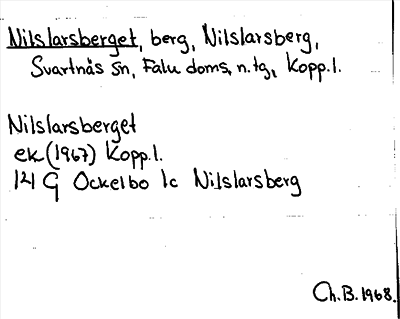 Nilslarsberget, berg, Nilslarsberg,
Svartnäs sn, Falu doms. n. tg, Kopp. l.
Nilslarsberget
ek (1967) Kopp. l.
14 G Ockelbo 1c Nilslarsberg
Ch. B. 1968.